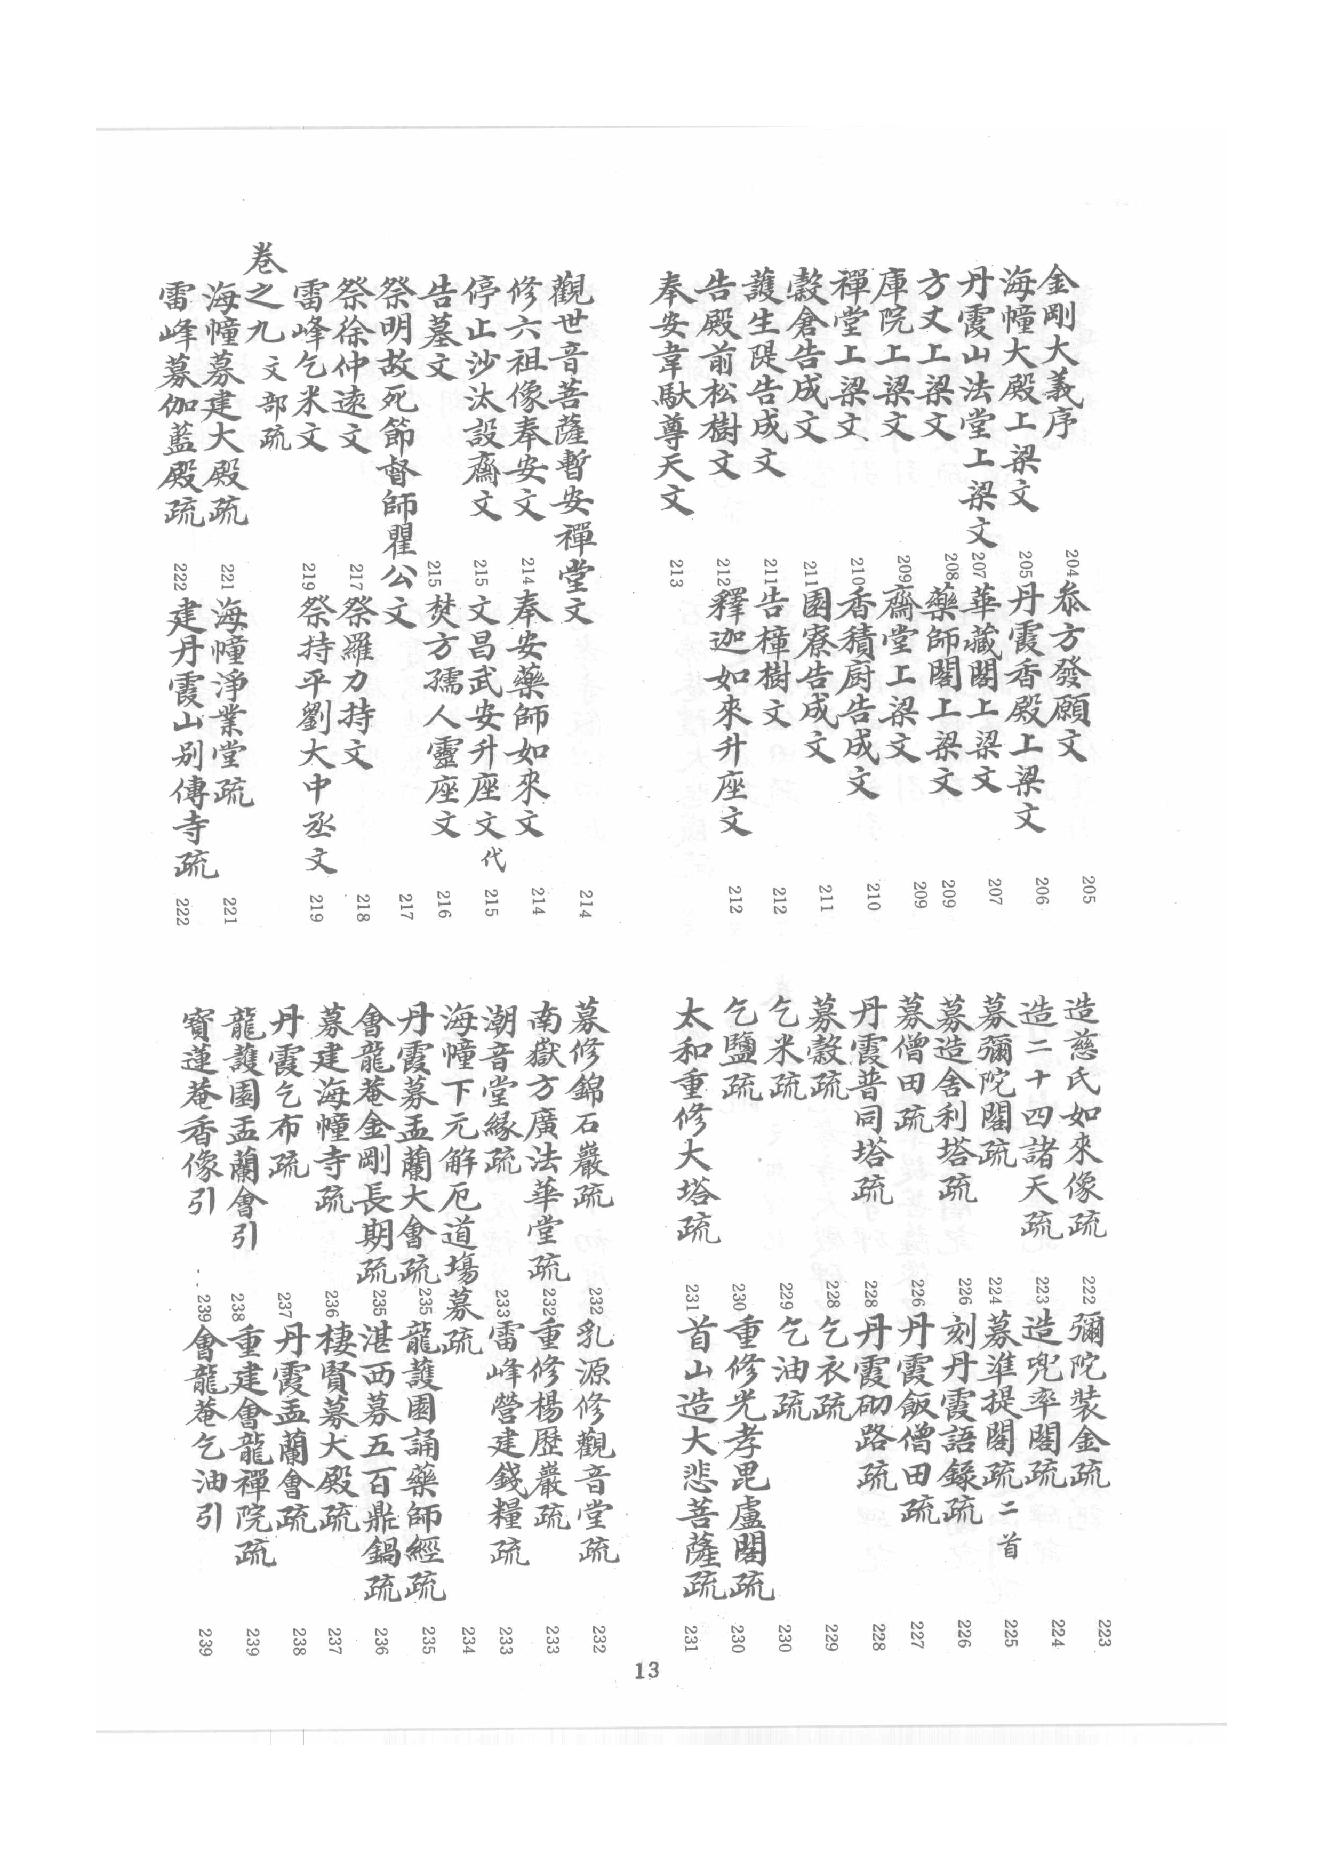 金剛大義序 204 叅方發願文 205
海幢大殿上梁文 205 丹霞香殿上梁文 206
丹霞山法堂上梁文 207 華藏閣上梁文 207
方丈上梁文 208 藥師閣上梁文 209
庫院上梁文 209 齋堂上梁文 209
禪堂上梁文 210 香積廚告成文 210
穀倉告成文 211 園寮告成文 211
護生隄告成文 211 告樟樹文 212
告殿前松樹文 212 釋迦如來升座文 212
奉安韋馱尊天文 213
觀世音菩薩暫安禪堂文 214
修六祖像奉安文 214 奉安藥師如來文 214
停止沙汰設齋文 215 文昌武安升座文 代 215
告墓文 215 焚方孺人靈座文 216
祭明故死節督師瞿公文 217
祭徐仲遠文 217 祭羅力持文 218
雷峰乞米文 219 祭持平劉大中丞文 219
卷之九 文部疏
海幢募建大殿疏 221 海幢淨業堂疏 221
雷峰募伽藍殿疏 222 建丹霞山別傳寺疏 222
造慈氏如來像疏 222 彌陀裝金疏 223
造二十四諸天疏 223 造兜率閣疏 224
募彌陀閣疏 224 募準提閣疏 二首 225
募造舍利塔疏 226 刻丹霞語錄疏 226
募僧田疏 226 丹霞飯僧田疏 227
丹霞普同塔疏 228 丹霞砌路疏 228
募穀疏 228 乞衣疏 229
乞米疏 229 乞油疏 230
乞鹽疏 230 重修光孝毘盧閣疏 230
太和重修大塔疏 231 首山造大悲菩薩疏 231
募修錦石巖疏 232 乳源修觀音堂疏 232
南嶽方廣法華堂疏 232 重修楊歷巖疏 233
潮音堂緣疏 233 雷峰營建錢糧疏 233
海幢下元解厄道場募疏 234
丹霞募盂蘭大會疏 235 龍護園誦藥師經疏 235
會龍菴金剛長期疏 235 湛西募五百鼎鍋疏 236
募建海幢寺疏 236 棲賢募大殿疏 237
丹霞乞布疏 237 丹霞盂蘭會疏 238
龍護園盂蘭會引 238 重建會龍禪院疏 239
寶蓮菴香像引 239 會龍菴乞油引 239
13